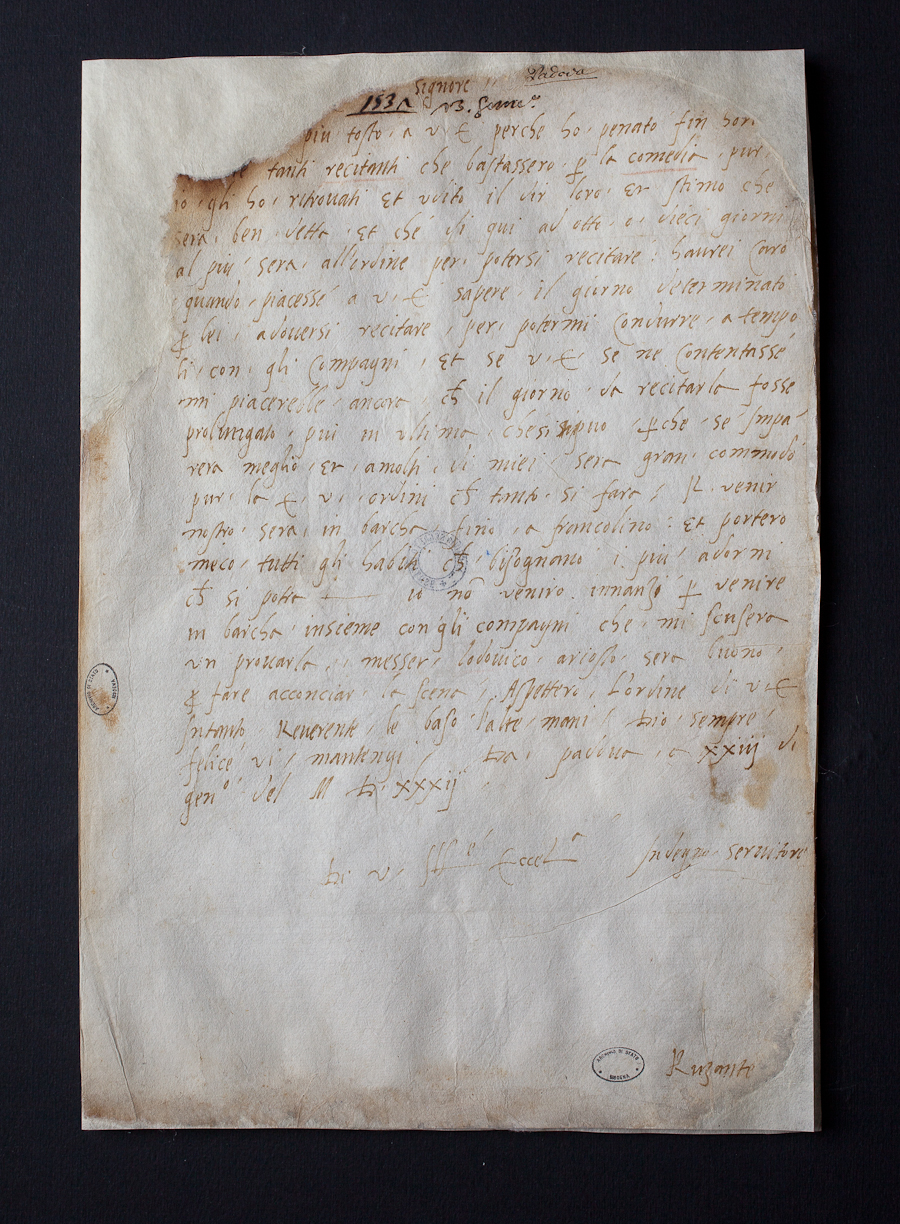 Padova
Signore
1532 23. Genn.º
più tosto, a v. E. perche ho, penato fin hora
tanti recitanti che bastassero ꝑ la comedia, pur,
io, gli ho, ritrouati et udito il dir loro, et stimo che
sera, ben, detta, et che di qui ad otto, o, dieci giorni
al più, sera, all'ordine per, potersi recitare: haurei caro
quando, piacesse a v. E. sapere, il giorno determinato
ꝑ lei, a douersi recitare, per, potermi condurre, a tempo
li, con, gli compagni, Et se v. E. se ne contentasse
mi piacerebbe, ancora ch̄ il giorno, da recitarla fosse
prolungato, piu in ultimo, che si puo ꝑche, se impa
rera meglio, et, a molti, di miei, sera gran, commodo
pur, la E. v. ordini ch̄ tanto, si fara; Il venir
nostro, sera, in barcha, fino, a francolino: et portero
meco, tutti gli habiti ch̄ bisognano i più adorni
ch̄ si potra io nõ veniro innanzi ꝑ venire
in barcha insieme con gli compagni che, mi scusera
un prouarla, messer, lodouico, ariosto, sera buono,
ꝑ fare acconciar, la scena, Aspettero, l'ordine di v. E.
Intanto Reuerente, le baso l'alte, mani, Dio, sempre,
felice vi, mantengi, Da, padoua, a xxiij di
genº del M D. xxxij
Di v. Ill.ma Eccel.a Indegno, seruitore
Ruzante
ARCHIVIO DI STATO
MODENA
ARCHIVIO DI STATO
MODENA